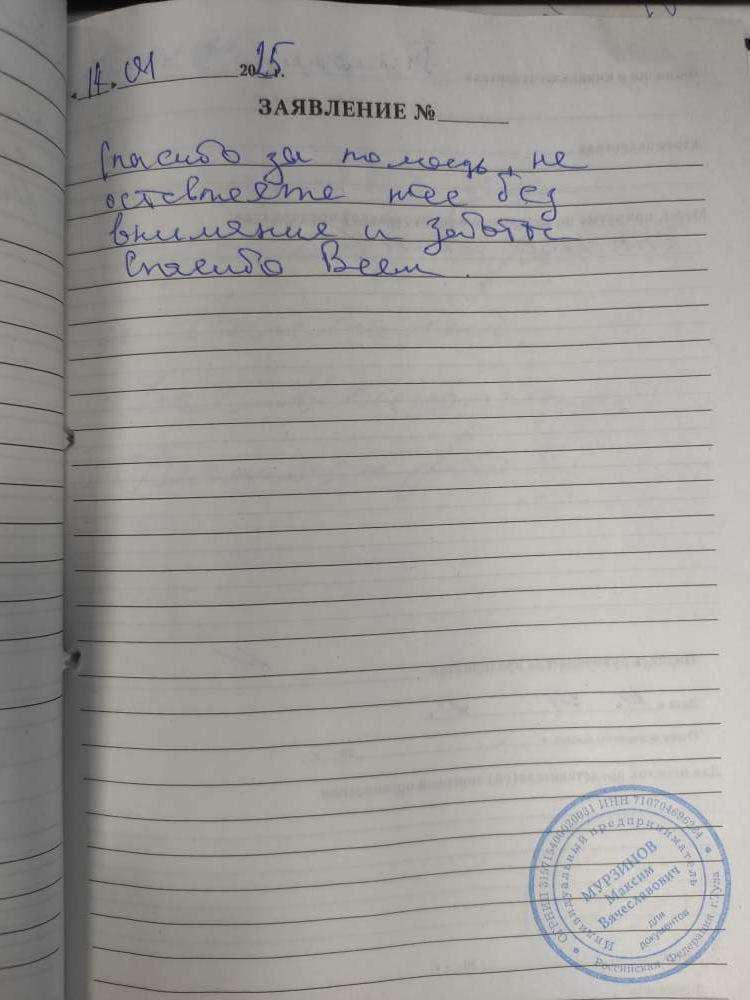 « 14 » 01 2025 г.
ЗАЯВЛЕНИЕ №
Спасибо за помощь, не
оставляете нас без
внимание и заботы
Спасибо Всем.
ОГРНИП ИНН
Индивидуальный предприниматель
МУРЗИНОВ
Максим
Вячеславович
для
документов
Российская Федерация г.Тула